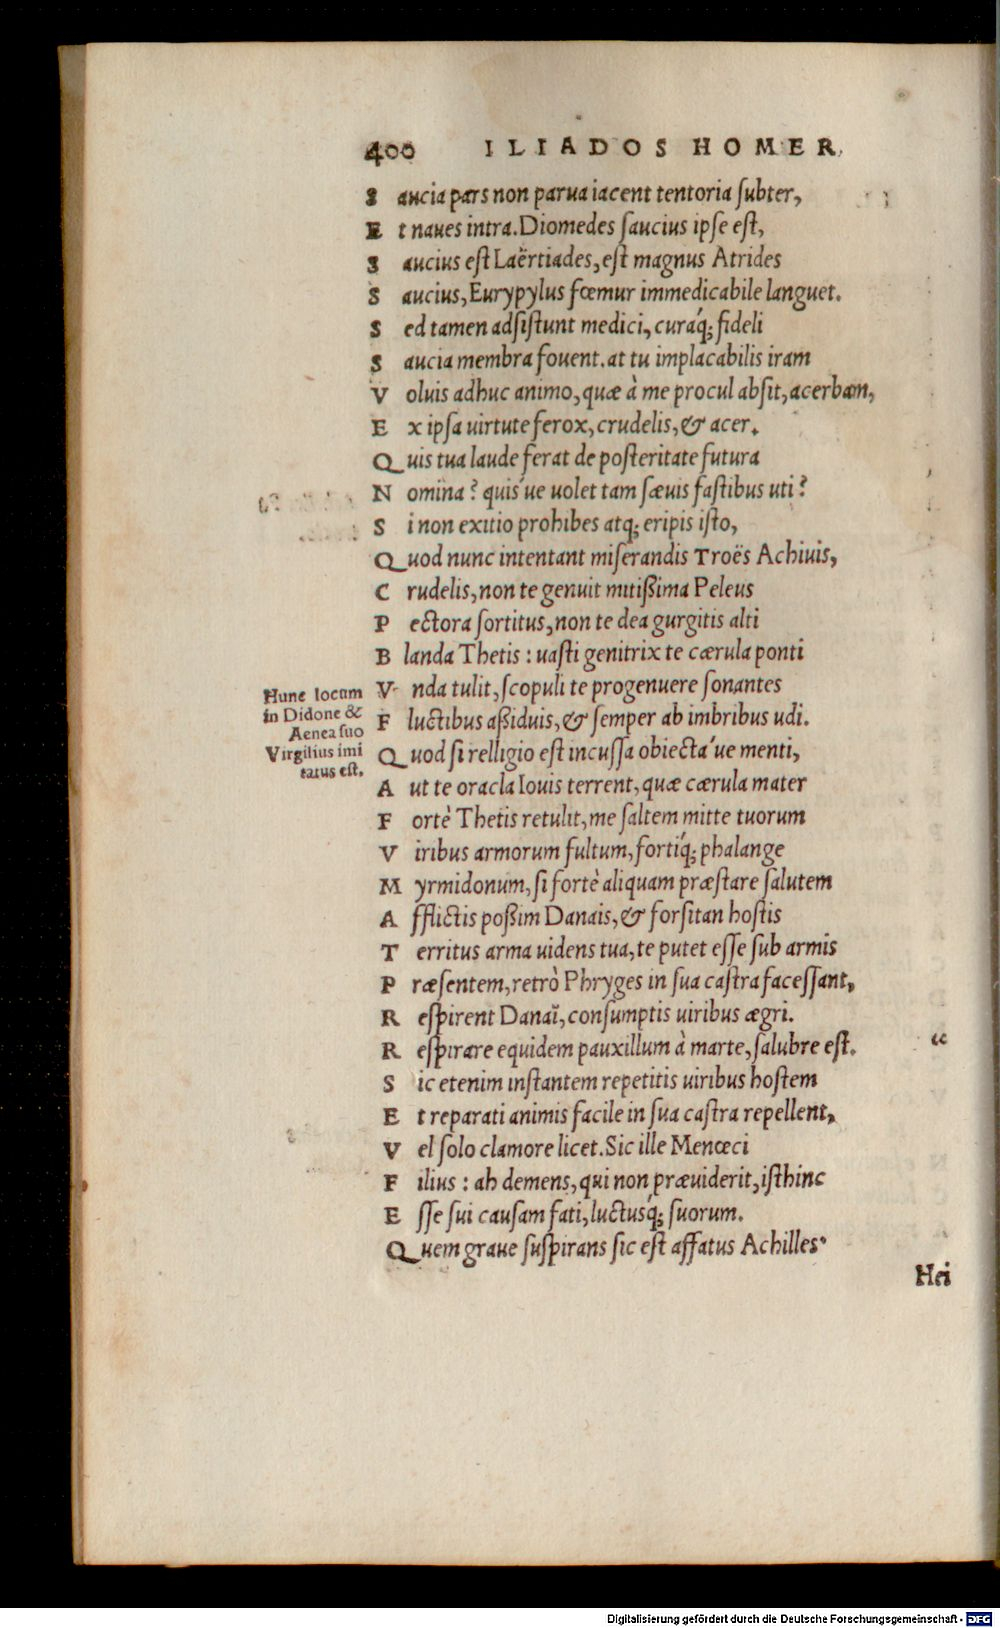 400 ILIADOS HOMER.
S aucia pars non parua iacent tentoria ſubter,
E t naues intra. Diomedes ſaucius ipſe eſt,
S aucius eſt Laërtiades, eſt magnus Atrides
S aucius, Eurypylus fœmur immedicabile languet.
S ed tamen adſiſtunt medici, curáq; fideli
S aucia membra fouent. at tu implacabilis iram
V oluis adhuc animo, quæ à me procul abſit, acerbam,
E x ipſa uirtute ferox, crudelis, & acer.
Q uis tua laude ferat de poſteritate futura
N omina? quis ́ue uolet tam ſæuis faſtibus uti?
S i non exitio prohibes atq; eripis iſto,
Q uod nunc intentant miſerandis Troës Achiuis,
C rudelis, non te genuit mitißima Peleus
P ectora ſortitus, non te dea gurgitis alti
B landa Thetis: uaſti genitrix te cærula ponti
V nda tulit, ſcopuli te progenuere ſonantes
F luctibus aßiduis, & ſemper ab imbribus udi.
Q uod ſi relligio eſt incuſſa obiecta ́ue menti,
A ut te oracla Iouis terrent, quæ cærula mater
F ortè Thetis retulit, me ſaltem mitte tuorum
V iribus armorum fultum, fortíq; phalange
M yrmidonum, ſi fortè aliquam præſtare ſalutem
A fflictis poßim Danais, & forſitan hoſtis
T erritus arma uidens tua, te putet eſſe ſub armis
P ræſentem, retrò Phryges in ſua caſtra faceſſant,
R eſpirent Danaï, conſumptis uiribus ægri.
R eſpirare equidem pauxillum à marte, ſalubre eſt. "
S ic etenim inſtantem repetitis uiribus hoſtem
E t reparati animis facile in ſua caſtra repellent,
V el ſolo clamore licet. Sic ille Menœci
F ilius: ah demens, qui non præuiderit, iſthinc
E ſſe ſui cauſam fati, luctusq́; ſuorum.
Q uem graue ſuſpirans ſic eſt affatus Achilles.
Hei
Hunc locum
in Didone &
Aenea ſuo
Virgilius imi
tatus eſt.
Digitalisierung gefördert durch die Deutsche Forschungsgemeinschaft - DFG